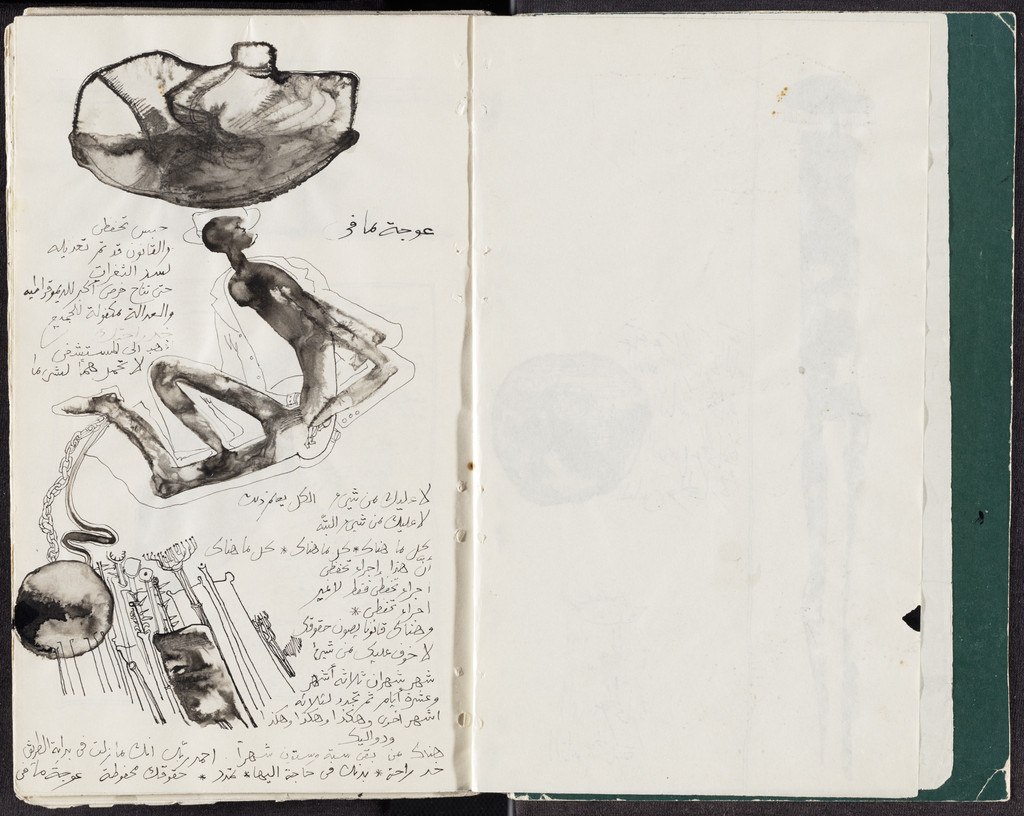 عوجة مافى
حبس تحفظى
والقانون قد تم تعديله
لسد الثغرات
حتى تتاح فرص أكبر للديموقراطيه
والعدالة مكفولة للجميع
ذهب إلى المستشفى
لا تحمل هما لشىء ما
لا عليك من شيىء الكل يعلم ذلك
لا عليك من شيىء البتّه
كل ما هناك * كل ما هناك * كل ما هناك
أن هذا إجراء تحفظى
اجراء تحفظى فقط لا غير
اجراء تحفظى *
وهناك قانونا يصون حقوقك
لا خوف عليك من شيئ
شهر شهران ثلاثة أشهر
وعشرة أيام ثم تجدد لثلاثة
أشهر أخرى وهكذا وهكذا وهكذا
ودواليك
هناك من بقى ستة وستون شهراً احمد ربك انك مازلت فى بداية الطريق
خذ راحة * بدنك فى حاجة اليها * تمدد * حقوقك محفوظة عوجة مافى